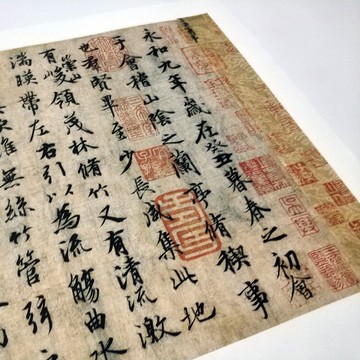 永和九年歲在癸丑暮春之初會
于會稽山陰之蘭亭脩禊事
也羣賢畢至少長咸集此地
有崇山峻領茂林脩竹又有清流激
湍暎帶左右引以為流觴曲水
雖無絲竹管弦